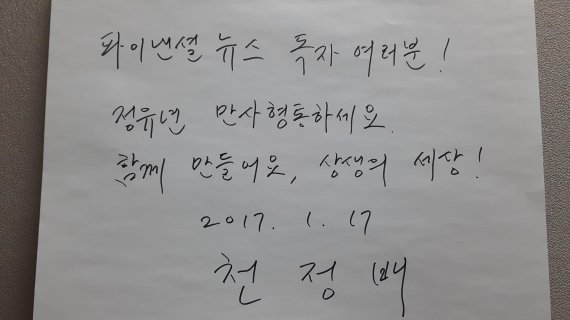 파이낸셜 뉴스 독자 여러분!
정유년 만사형통하세요.
함께 만들어요, 상생의 세상!
2017. 1. 17
천정배